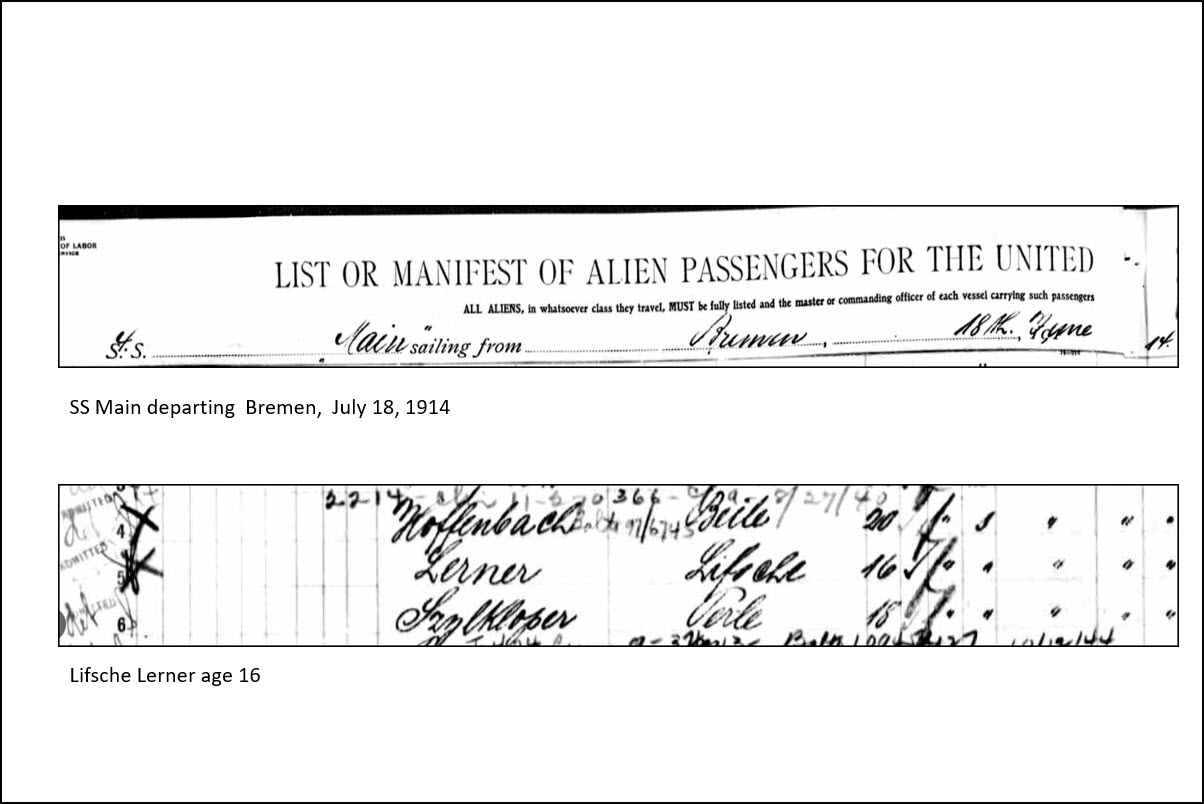 OF LABOR
LIST OR MANIFEST OF ALIEN PASSENGERS FOR THE UNITED
ALL ALIENS, in whatsoever class they travel, MUST be fully listed and the master or commanding officer of each vessel carrying such passengers
S.S. "Main" sailing from Bremen, 18th. June 14.
SS Main departing Bremen, July 18, 1914
2-214 366- 8/27/40
ADMITTED 4 Hoffenbach Beile 20 f " s " " "
ADMITTED 5 Lerner Lifsche 16 f " " " " "
6 Szylkloper Perle 18 " " " " "
Lifsche Lerner age 16